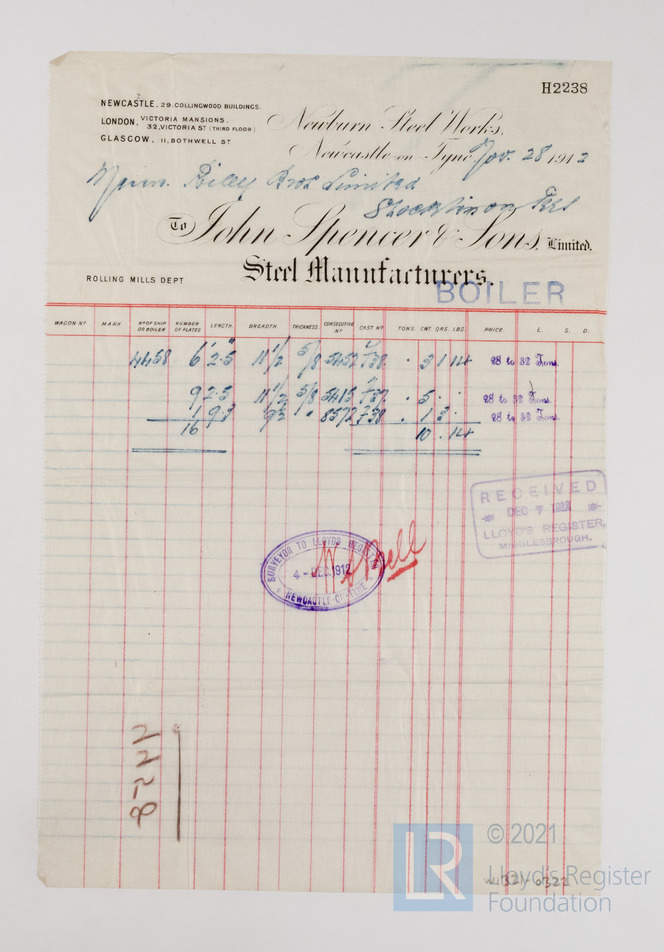 H2238
NEWCASTLE. 29. COLLINGWOOD BUILDINGS.
LONDON. VICTORIA MANSIONS.
32, VICTORIA ST (THIRD FLOOR)
GLASGOW. 11, BOTHWELL ST
Newburn Steel Works,
Newcastle-on-Tyne Nov. 28 1912
Messrs. Riley Bros Limited
Stockton on Tees
To John Spencer & Sons, Limited.
Steel Manufacturers.
ROLLING MILLS DEPT
BOILER
WAGON No MARK No OF SHIP OR BOILER NUMBER OF PLATES LENGTH. BREADTH. THICKNESS. CONSECUTIVE No CAST No TONS. CWT. QRS. LBS. PRICE. £. S. D.
4458 6 2.5 11 1/2 5/8 5452 738 . 3 1 14 28 to 32 Tons.
9 2.5 11 1/2 5/8 5415 737 . 5 . . 28 to 32 Tons.
1 9.3 93 " 8572 738 . 1 3 . 28 to 32 Tons.
16 10 . 14
RECEIVED
DEC 7 1912
LLOYD'S REGISTER,
MIDDLESBROUGH.
SURVEYOR TO LLOYDS REGISTER
4 - DEC. 1912
NEWCASTLE-ON-TYNE
Bell
© 2021
LR
Lloyd's Register
Foundation